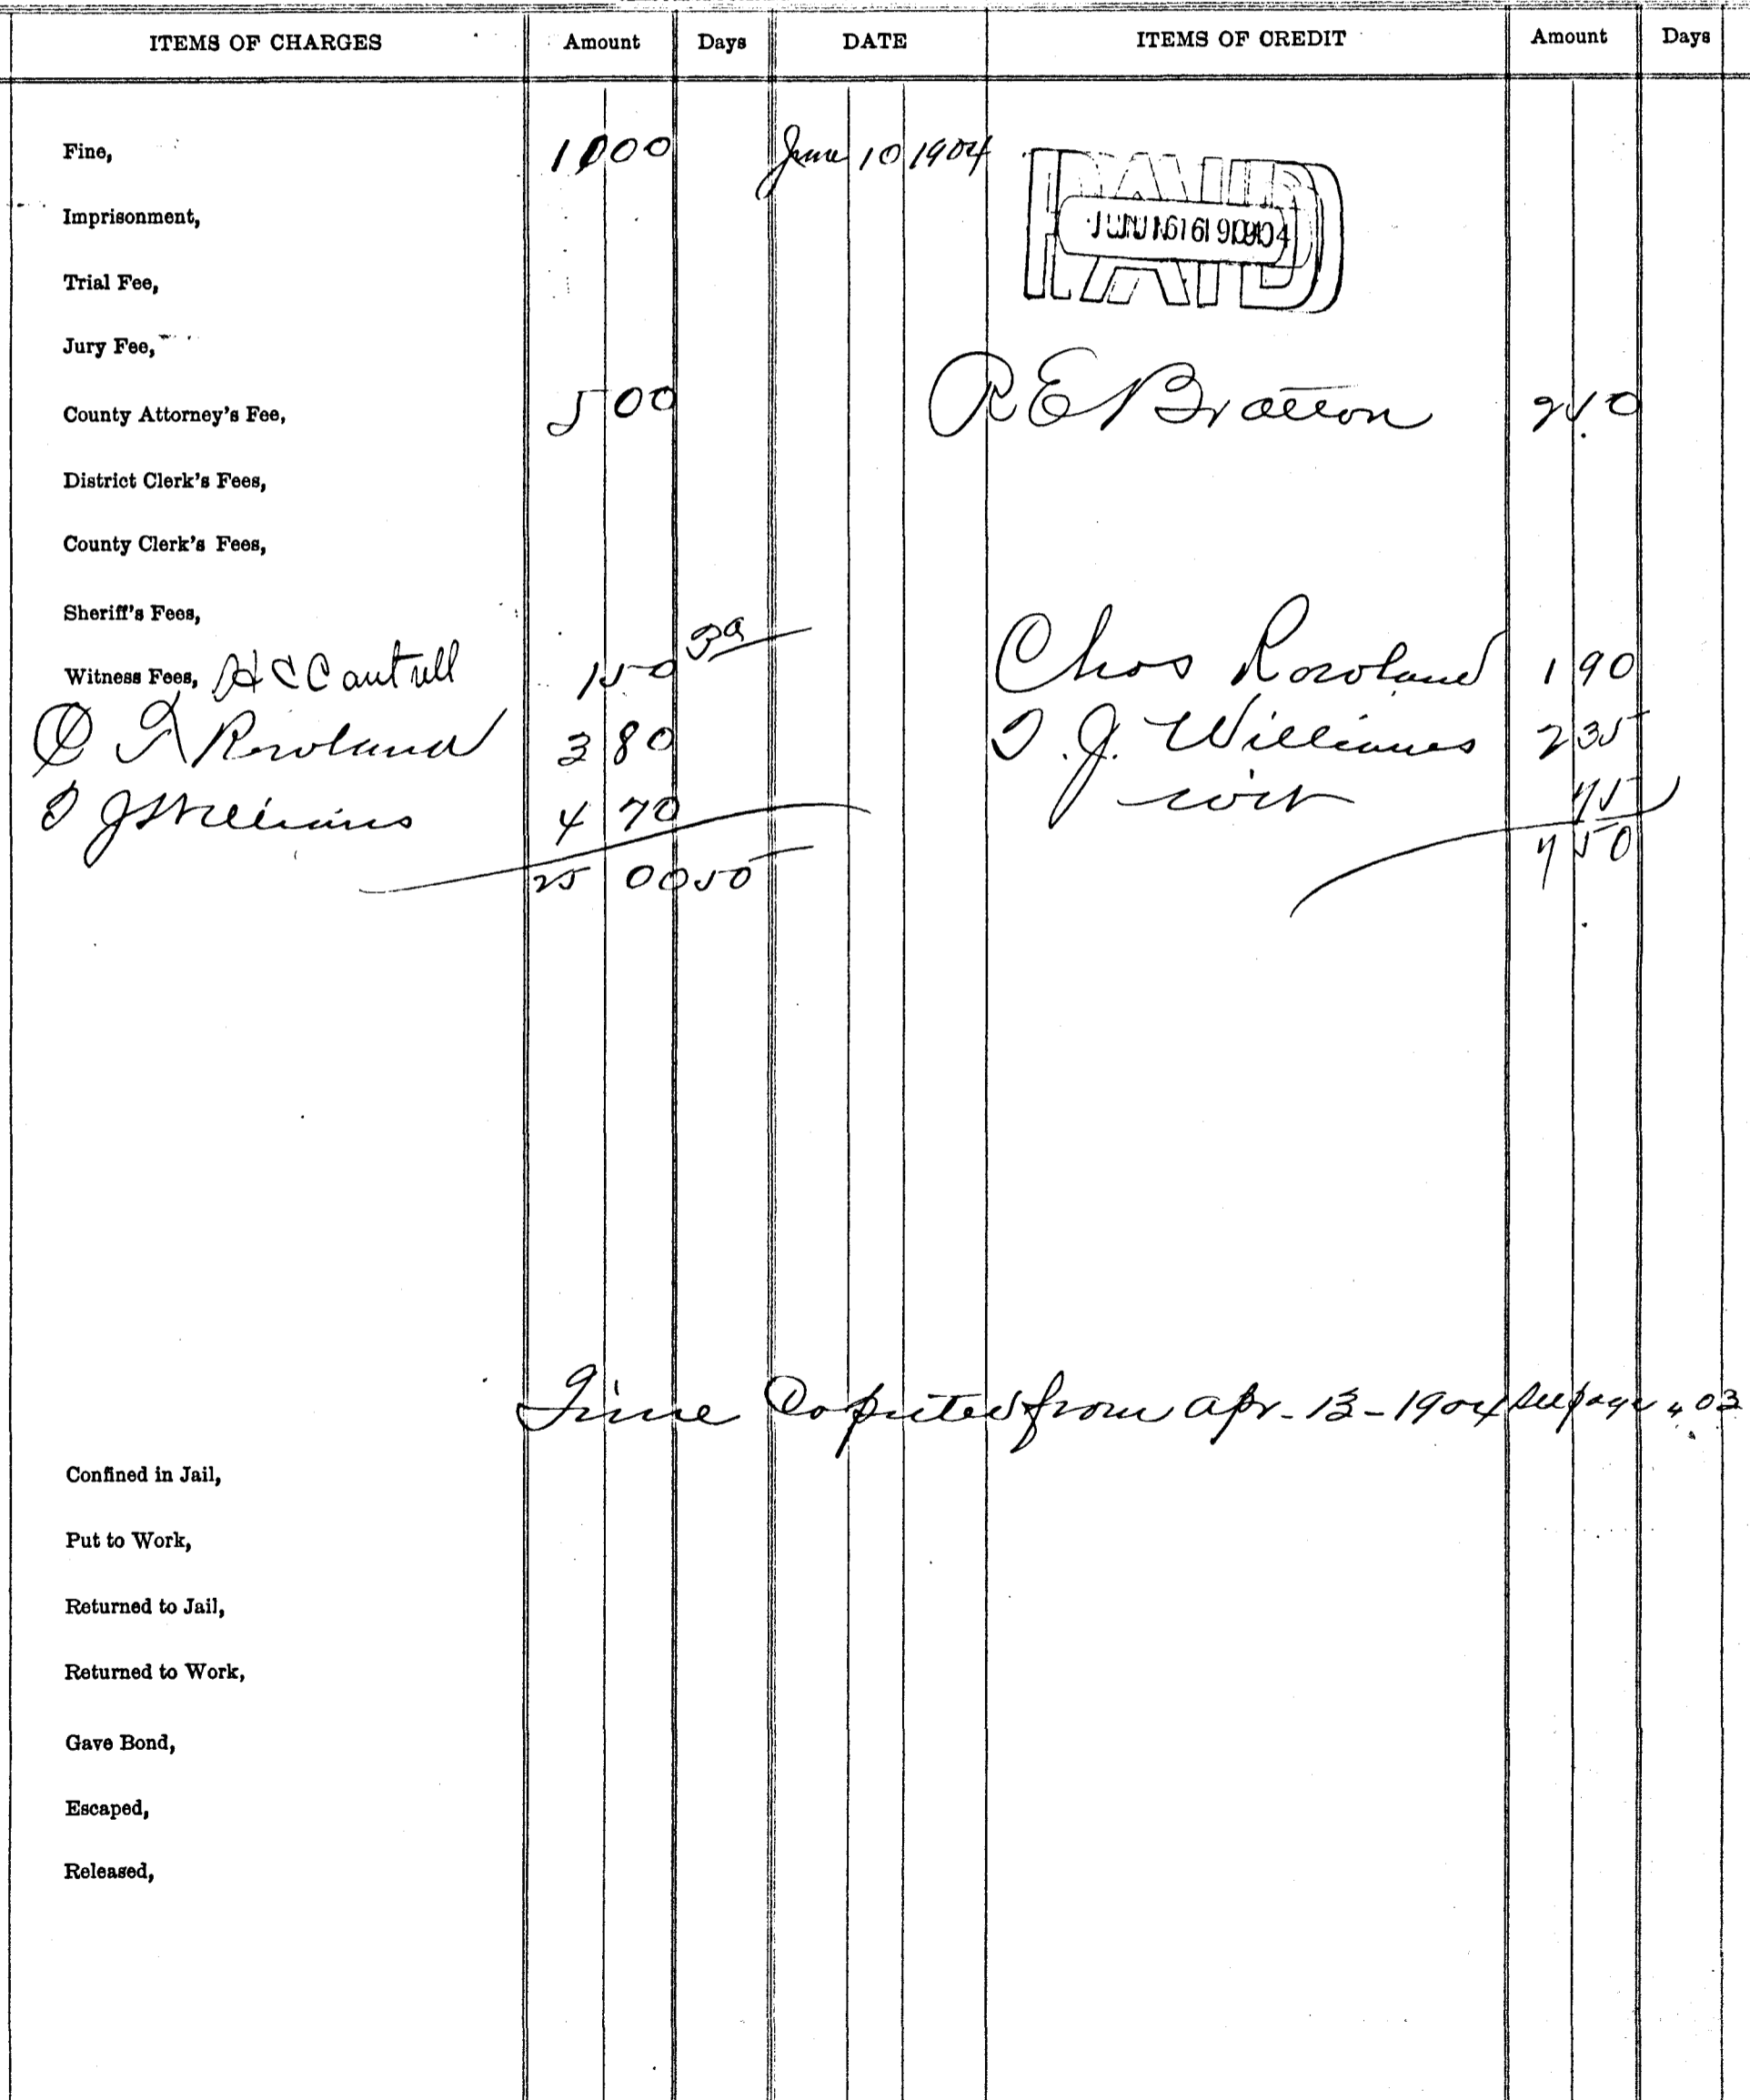 ITEMS OF CHARGES Amount Days DATE ITEMS OF CREDIT Amount Days
Fine, 10 00 June 10 1904
PAID
JUN 16 1904
Imprisonment,
Trial Fee,
Jury Fee,
County Attorney's Fee, 5 00 R E Bratton 2 50
District Clerk's Fees,
County Clerk's Fees,
Sheriff's Fees,
Witness Fees, H C Cantrell 1 50 Chas Rowland 1 90
C F Rowland 3 80 T. J. Williams 2 35
T J Williams 4 70 75
25 00 50 7 50
Time Coputed from Apr-13-1904 See page 403
Confined in Jail,
Put to Work,
Returned to Jail,
Returned to Work,
Gave Bond,
Escaped,
Released,